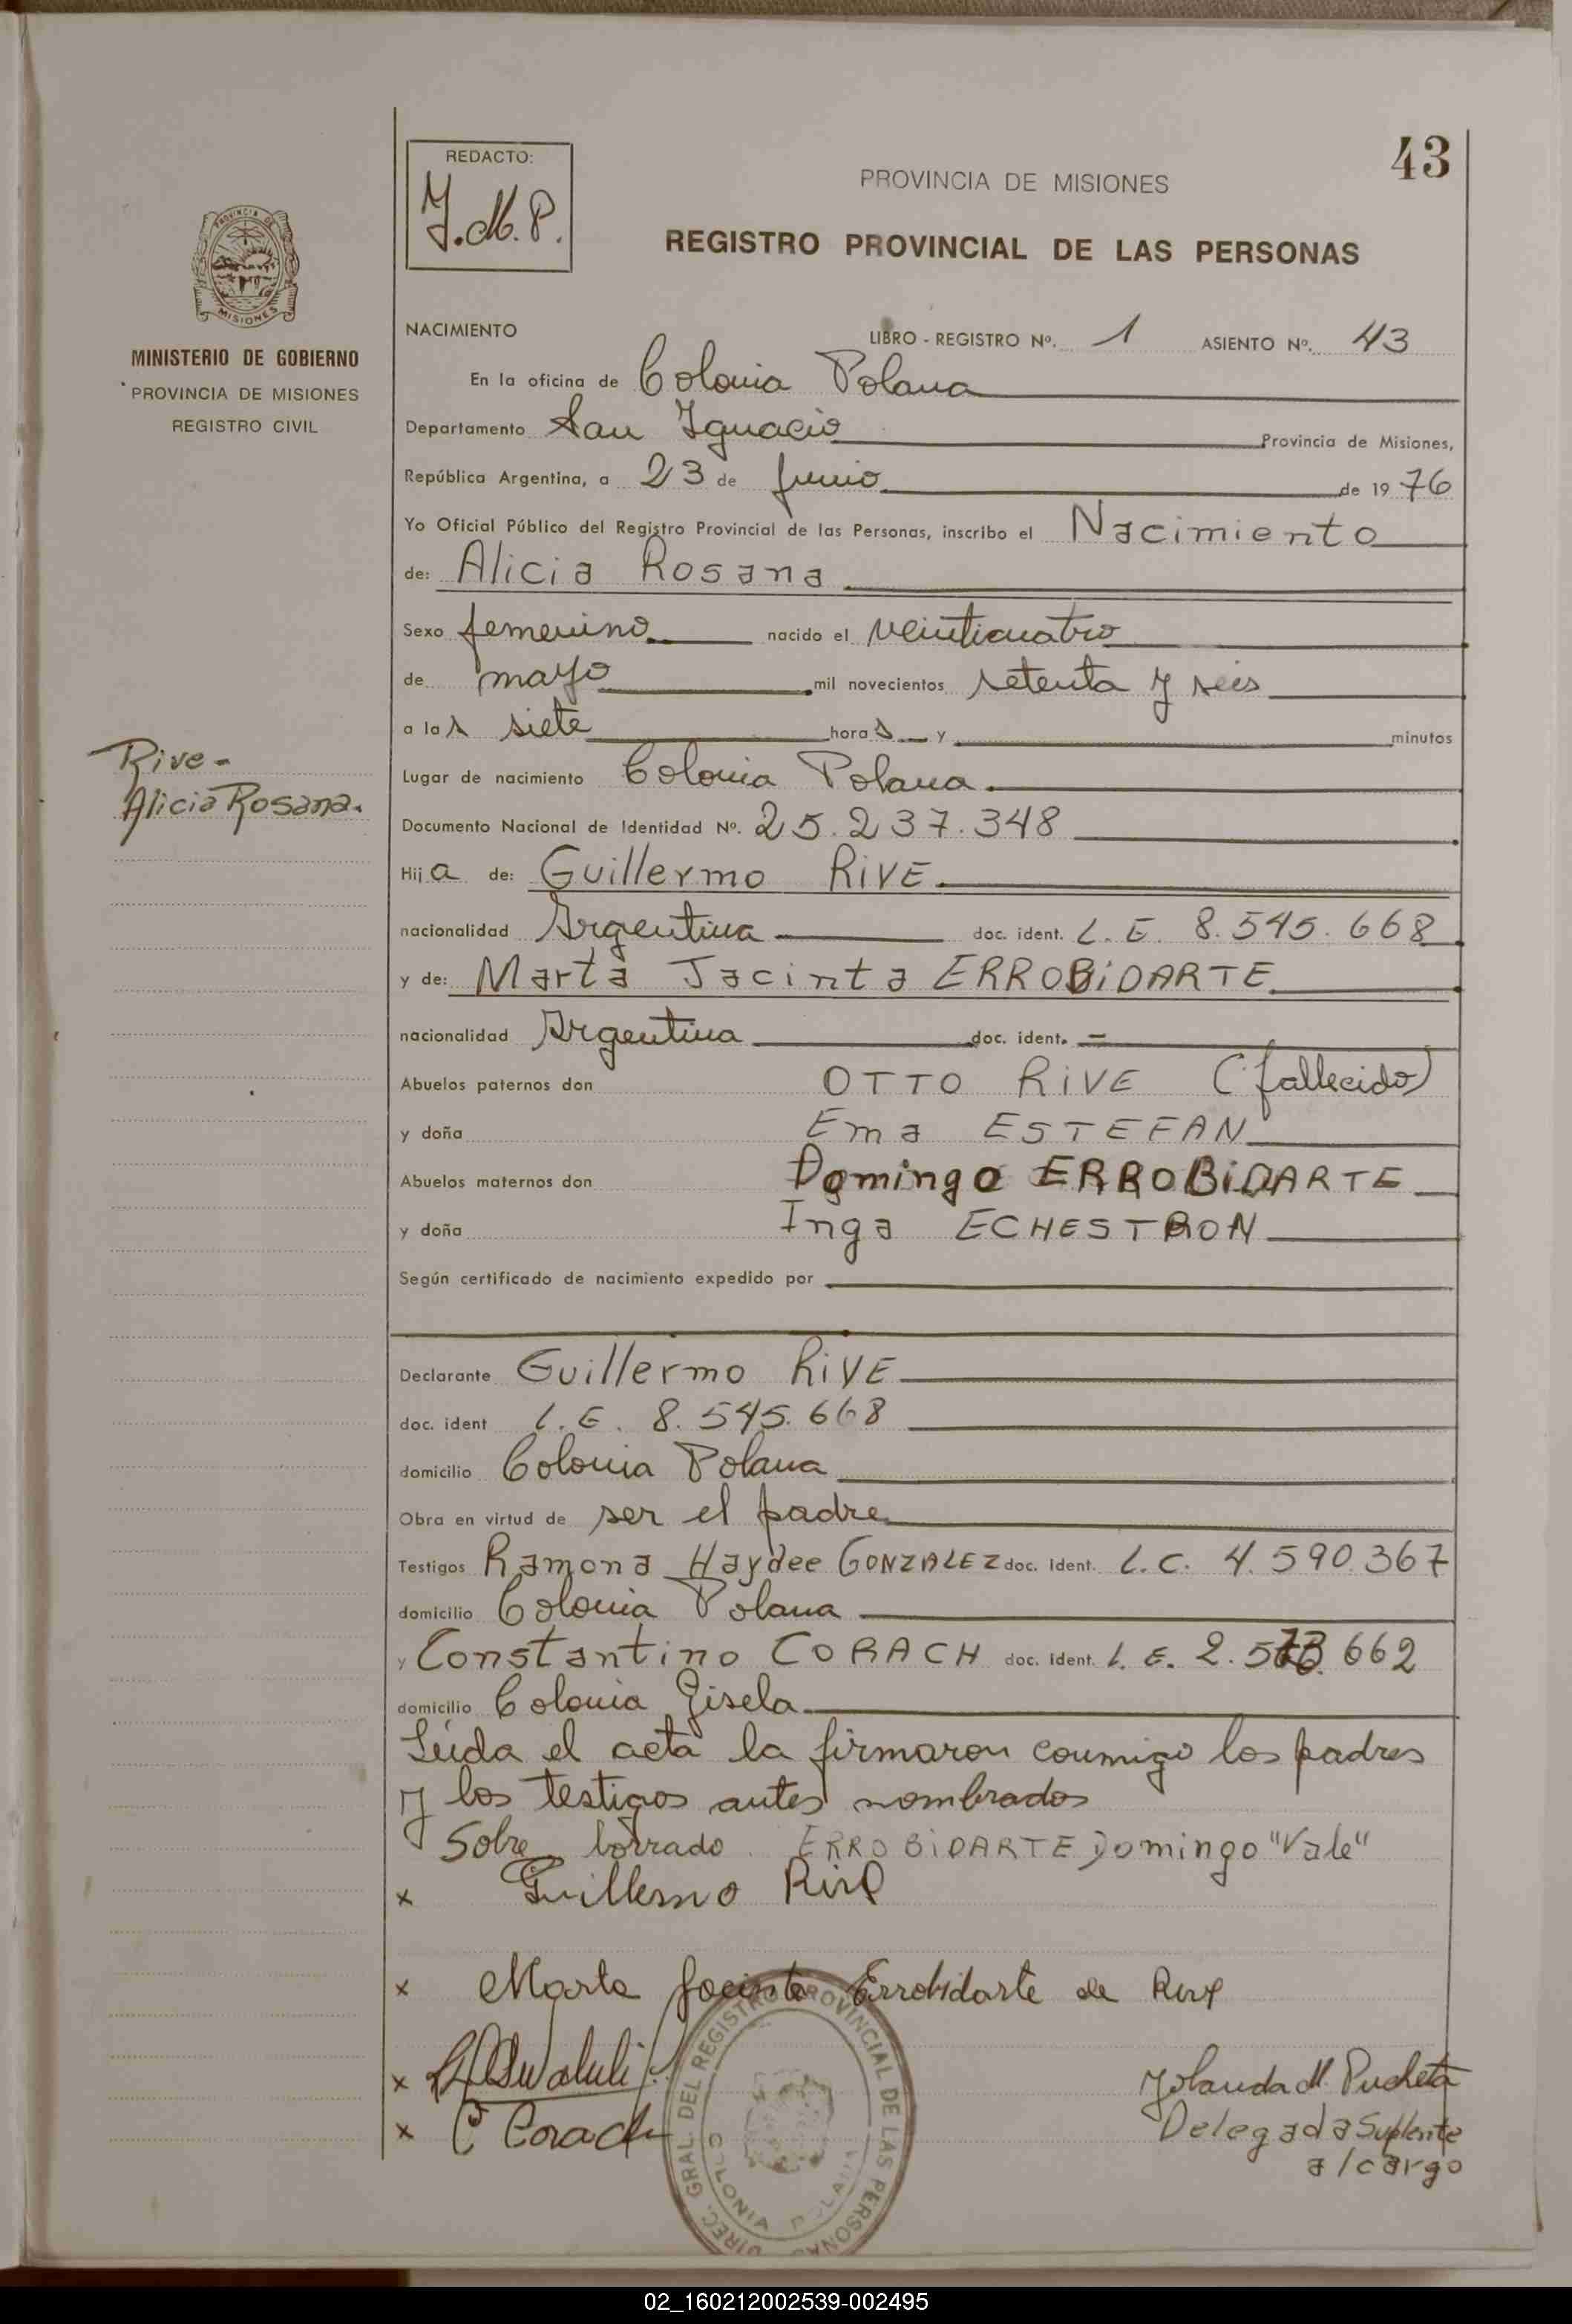 43
REDACTO:
J.M.P.
PROVINCIA DE MISIONES
REGISTRO PROVINCIAL DE LAS PERSONAS
PROVINCIA DE
MISIONES
MINISTERIO DE GOBIERNO
PROVINCIA DE MISIONES
REGISTRO CIVIL
NACIMIENTO LIBRO - REGISTRO Nº. 1 ASIENTO Nº. 43
En la oficina de Colonia Polana
Departamento San Ignacio Provincia de Misiones,
República Argentina, a 23 de junio de 19 76
Yo Oficial Público del Registro Provincial de las Personas, inscribo el Nacimiento
de: Alicia Rosana
Sexo femenino nacido el veinticuatro
de mayo mil novecientos setenta y seis
a las siete horas y minutos
Rive -
Alicia Rosana.
Lugar de nacimiento Colonia Polana
Documento Nacional de Identidad Nº. 25.237.348
Hija de: Guillermo RIVE
nacionalidad Argentina doc. ident. L. E. 8.545.668
y de: Marta Jacinta ERROBIDARTE
nacionalidad Argentina doc. ident. -
Abuelos paternos don OTTO RIVE (fallecido)
y doña Ema ESTEFAN
Abuelos maternos don Domingo ERROBIDARTE
y doña Inga ECHESTRON
Según certificado de nacimiento expedido por
Declarante Guillermo RIVE
doc. ident L. E. 8.545.668
domicilio Colonia Polana
Obra en virtud de ser el padre
Testigos Ramona Haydee GONZALEZ doc. ident. L.C. 4.590.367
domicilio Colonia Polana
y Constantino CORACH doc. ident. L. E. 2. 662
domicilio Colonia Gisela
Leída el acta la firmaron conmigo los padres
y los testigos antes nombrados
Sobre borrado ERROBIDARTE Domingo "Vale"
x Guillermo Rive
x Marta Jacinta Errobidarte de Rive
x
x C Corach
Yolanda M. Pucheta
Delegada Suplente
a/cargo
DIREC. GRAL. DEL REGISTRO PROVINCIAL DE LAS PERSONAS
COLONIA POLANA
02_160212002539-002495